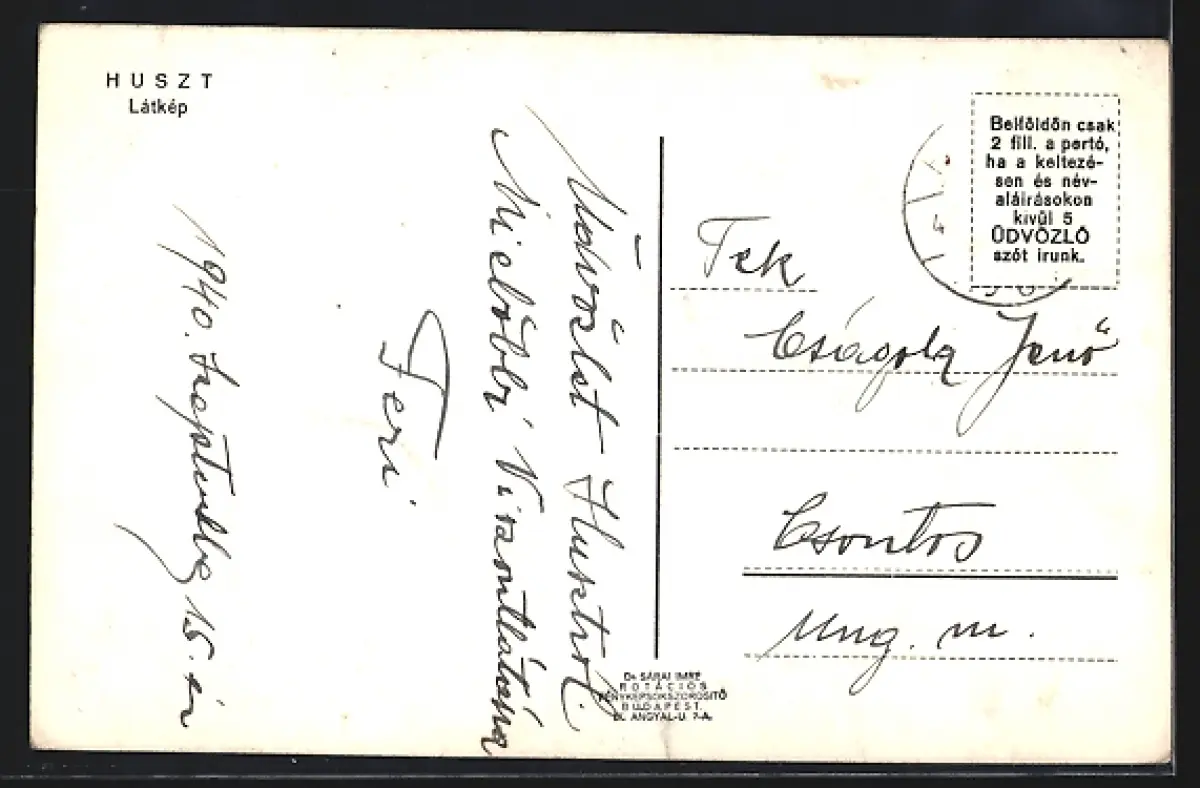 HUSZT
Látkép
1940. Szeptember 15.-én
Üdvözlet Husztról.
Mielőbbi Viszontlátásra
Feri
Belföldön csak
2 fill. a portó,
ha a keltezé-
sen és név-
aláirásokon
kivül 5
ÜDVÖZLŐ
szót irunk.
Tek
Jenő
Csontos
Ung. m.
Dr SÁRAI IMRE
ROTÁCIÓS
FÉNYKÉPSOKSZOROSITÓ
BUDAPEST.
ANGYAL-U. 7-A.